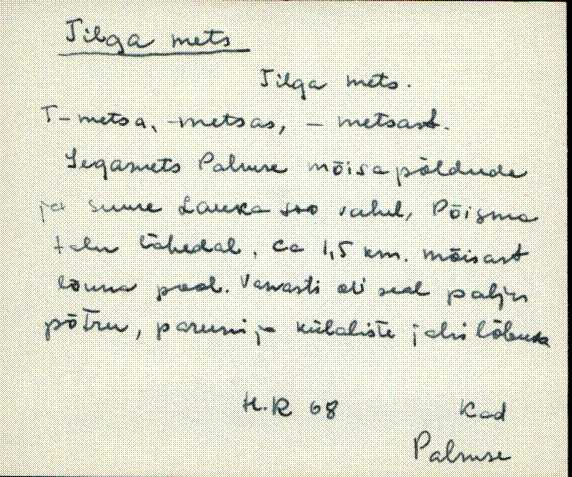 Tilga mets
Tilga mets.
T-metsa, -metsas, - metsast.
Segamets Palmse mõisa põldude
ja suure Lauka soo vahel, Põisma
talu lähedal, ca 1,5 km. mõisast
lõuna pool. Vanasti oli seal palju
põtru, paruni ja külaliste jahilõbuks
H.R 68 Kad
Palmse